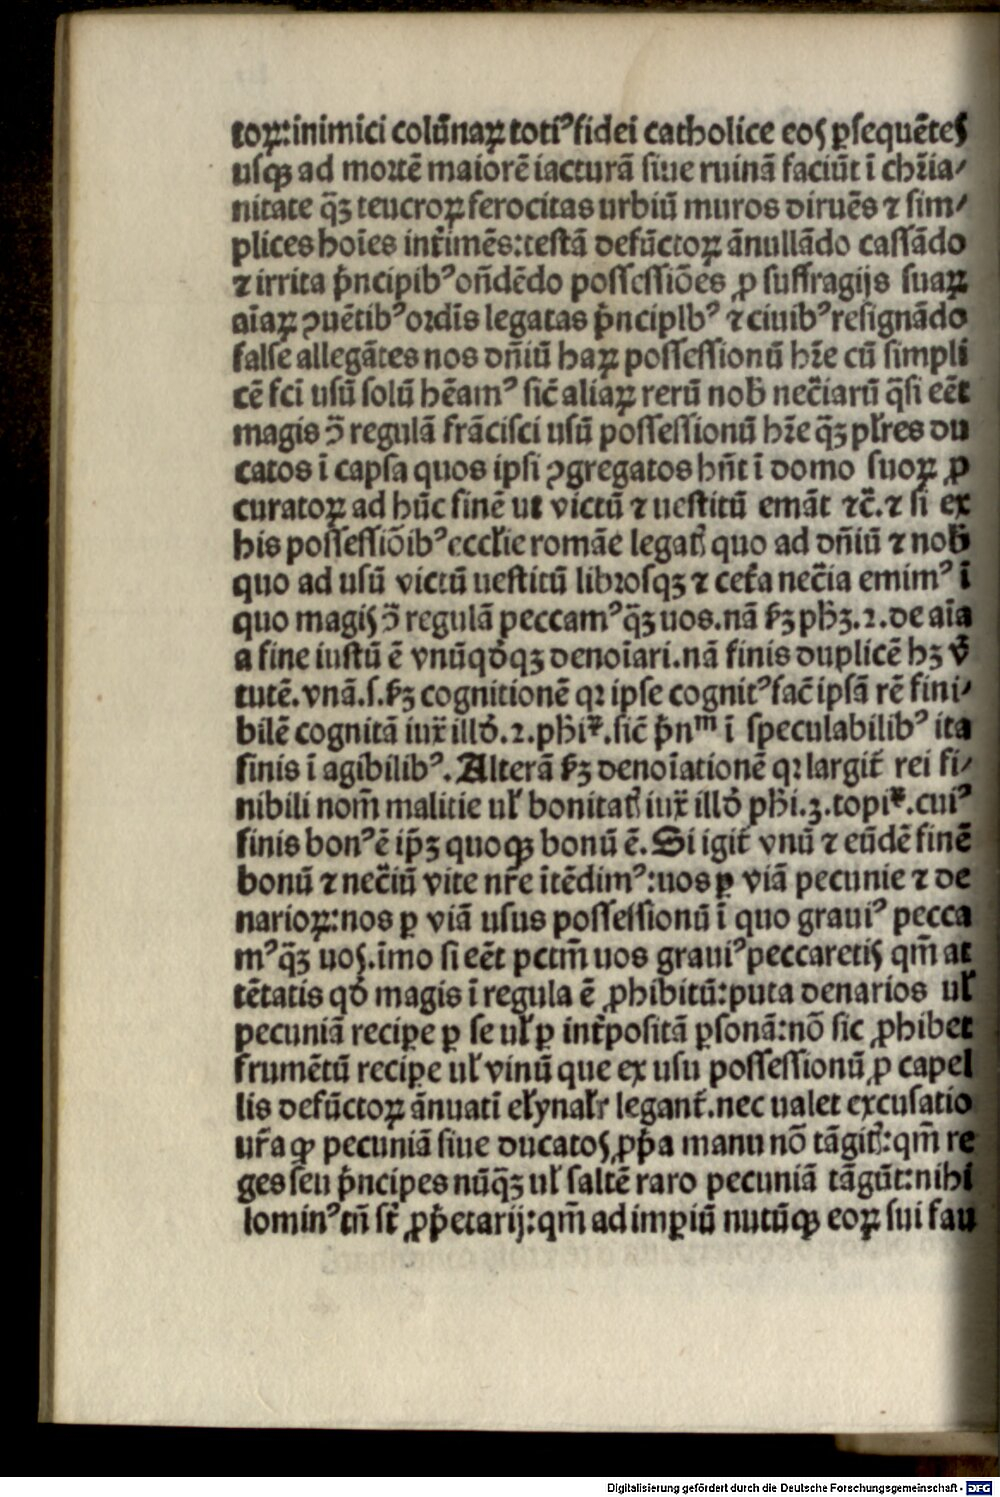 toꝝ:inimici colūnaꝝ toti⁹ fidei catholice eos ꝑsequētes
usqꝫ ad mortē maiorē iacturā siue ruinā faciūt ī chr̄ia/
nitate q̄ꝫ teucroꝝ ferocitas urbiū muros diruēs ⁊ sim/
plices hoīes int̄imēs:testā defūctoꝝ ānullādo cassādo
⁊ irrita p̄ncipib⁹ on̄dēdo possessiōes ꝓ suffragijs suaꝝ
aīaꝝ ꝯuētib⁹ ordīs legatas p̄nciplb⁹ ⁊ ciuib⁹ resignādo
false allegātes nos dn̄iū haꝝ possessionū hr̄e cū simpli
cē fci usū solū hēam⁹ sic̄ aliaꝝ rerū nob̄ nec̄iarū q̄si eēt
magis ꝯ̄ regulā frācisci usū possessionū hr̄e q̄ꝫ pl̄res du
catos ī capsa quos ipsi ꝯgregatos hn̄t ī domo suoꝝ ꝓ
curatoꝝ ad hūc finē ut victū ⁊ uestitū emāt ⁊c̄.⁊ si ex
his possessiōib⁹ eccl̄ie romāe legat̄ quo ad dn̄iū ⁊ nob̄
quo ad usū victū uestitū librosqꝫ ⁊ cet̄a nec̄ia emim⁹ ī
quo magis ꝯ̄ regulā peccam⁹ q̄ꝫ uos.nā ẜꝫ ph̄ꝫ.2.de aīa
a fine iustū ē vnūqd̄qꝫ denoīari.nā finis duplicē hꝫ v̄
tutē.vnā.s.ẜꝫ cognitionē qꝛ ipse cognit⁹ fac̄ ipsā rē fini/
bilē cognitā iux̄ illd̄.2.ph̄iꝝ.sic̄ p̄nᵐ ī speculabilib⁹ ita
finis ī agibilib⁹.Alterā ẜꝫ denoīationē qꝛ largit̄ rei fi/
nibili nom̄ malitie ul̄ bonitat̄ iux̄ illd̄ ph̄i.3.topiꝝ.cui⁹
finis bon⁹ ē ip̄ꝫ quoqꝫ bonū ē.Si igit̄ vnū ⁊ eūdē finē
bonū ⁊ nec̄iū vite nr̄e ītēdim⁹:uos ꝑ viā pecunie ⁊ de
narioꝝ:nos ꝑ viā usus possessionū ī quo graui⁹ pecca
m⁹ q̄ꝫ uos.īmo si eēt pctm̄ uos graui⁹ peccaretis qm̄ at
tētatis qd̄ magis ī regula ē ꝓhibitū:puta denarios ul̄
pecuniā recipe ꝑ se ul̄ ꝑ int̄positā ꝑsonā:nō sic ꝓhibet
frumētū recipe ul̄ vinū que ex usu possessionū ꝓ capel
lis defūctoꝝ ānuatī el̄ynal̄r legant̄.nec ualet excusatio
ur̄a ꝙ pecuniā siue ducatos ꝓp̄a manu nō tāgit̄:qm̄ re
ges seu p̄ncipes nūq̄ꝫ ul̄ saltē raro pecuniā tāgūt:nihi
lomin⁹ tn̄ st̄ ꝓp̄etarij:qm̄ ad imꝑiū nutūqꝫ eoꝝ sui fau
Digitalisierung gefördert durch die Deutsche Forschungsgemeinschaft - DFG